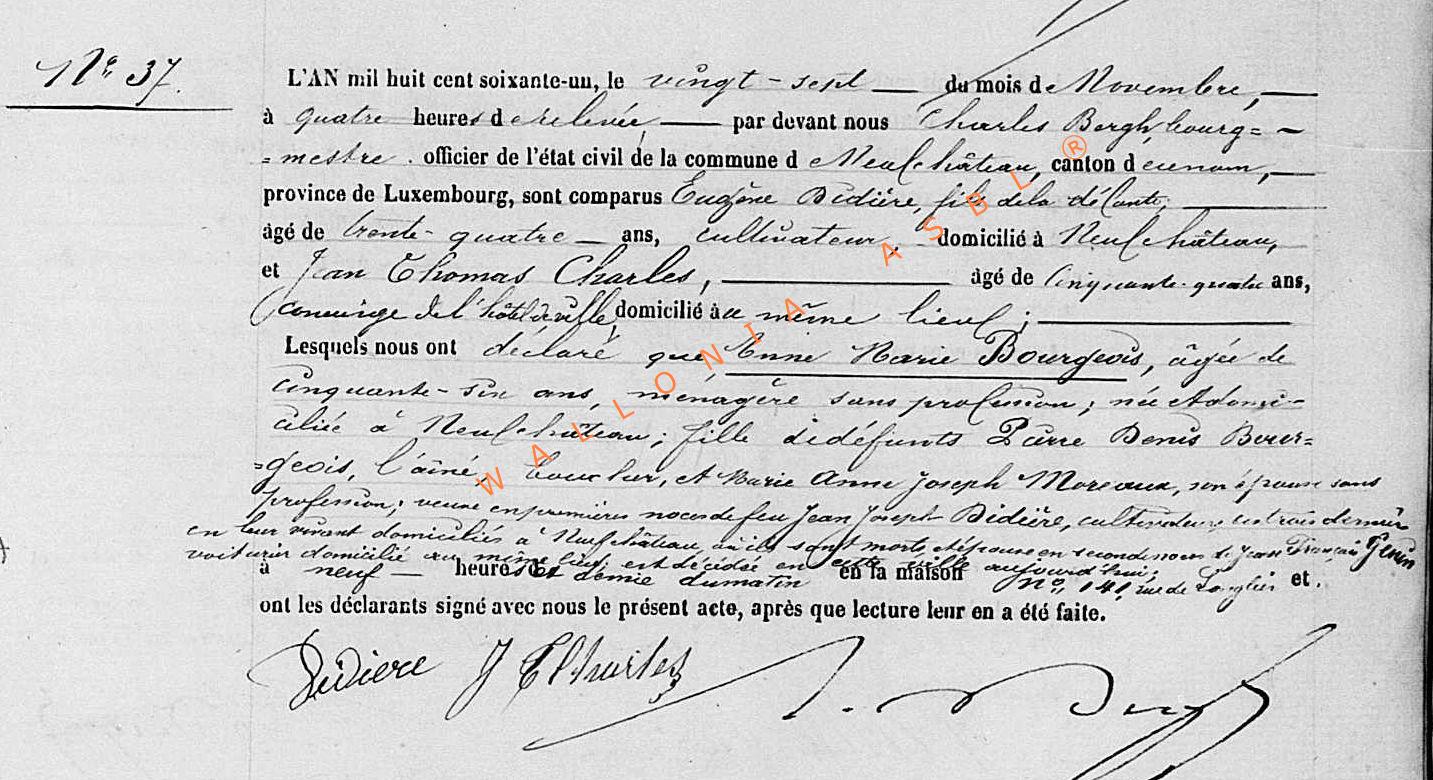 N° 37.
L'AN mil huit cent soixante-un, le vingt-sept du mois de Novembre,
à quatre heures de relevée, par devant nous Charles Bergh, bourg=
=mestre. officier de l'état civil de la commune d e Neufchâteau, canton d e ce nom,
province de Luxembourg, sont comparus Eugène Didière, fils de la défunte,
âgé de trente-quatre ans, cultivateur, domicilié à Neufchâteau,
et Jean Thomas Charles, âgé de cinquante-quatre ans,
concierge de l'hôtel de ville, domicilié au même lieu;
Lesquels nous ont déclaré que Anne Marie Bourgeois, âgée de
cinquante-six ans, ménagère sans profession; née et domi=
ciliée à Neufchâteau; fille de défunts Pierre Denis Bour=
=geois, l'aîné, boucher, et Marie Anne Joseph Moreaux, son épouse sans
profession; veuve en premières noces de feu Jean Joseph Didière, cultivateur, ces trois derniers
en leur vivant domiciliés à Neufchâteau, où ils sont morts, et épouse en secondes noces de Jean François
voiturier domicilié au même lieu, est décédée en cette ville aujourd'hui,
à neuf heures et demie du matin en la maison N° 141, rue de Longlier et
ont les déclarants signé avec nous le présent acte, après que lecture leur en a été faite.
Didière J T Charles
WALLONIA ASBL ®